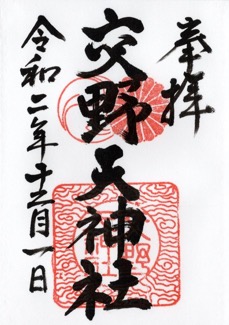 奉拝
交野天神社
令和二年十二月一日